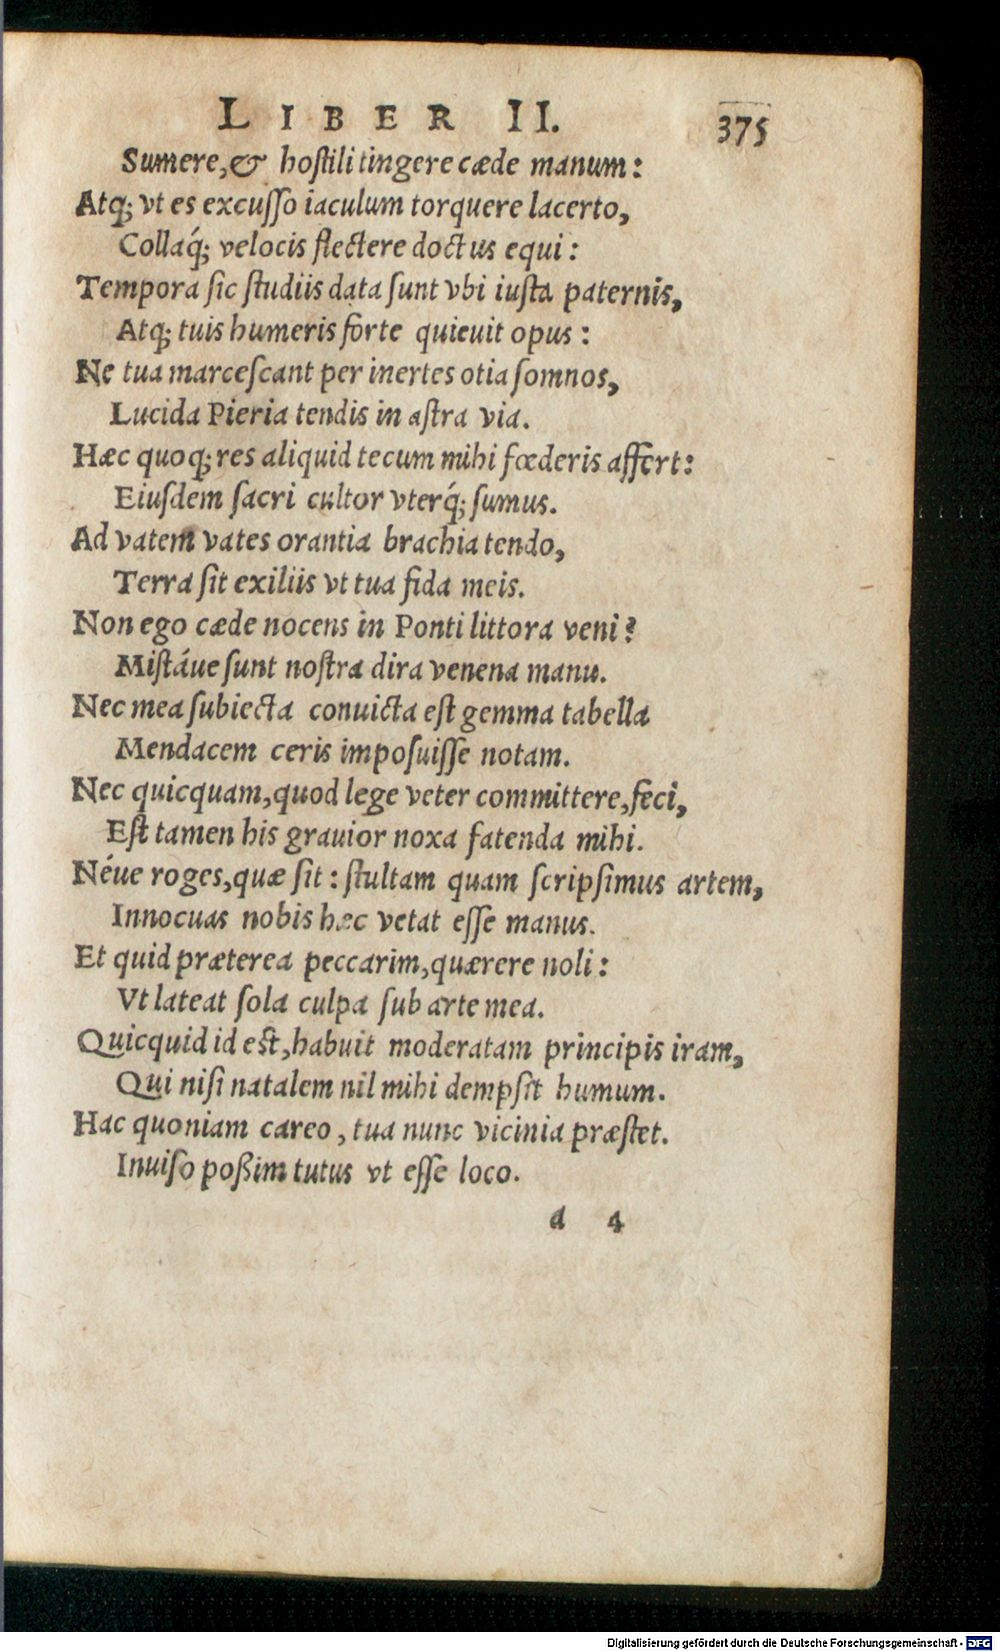 LIBER II. 375
Sumere,& hostili tingere cæde manum:
Atq; vt es excusso iaculum torquere lacerto,
Collaq́; velocis flectere doctus equi:
Tempora sic studiis data sunt vbi iusta paternis,
Atq; tuis humeris forte quieuit opus:
Ne tua marcescant per inertes otia somnos,
Lucida Pieria tendis in astra via.
Hæc quoq; res aliquid tecum mihi fœderis affert:
Eiusdem sacri cultor vterq́; sumus.
Ad vatem vates orantia brachia tendo,
Terra sit exiliis vt tua fida meis.
Non ego cæde nocens in Ponti littora veni?
Mistáue sunt nostra dira venena manu.
Nec mea subiecta conuicta est gemma tabella
Mendacem ceris imposuisse notam.
Nec quicquam,quod lege veter committere,feci,
Est tamen his grauior noxa fatenda mihi.
Néue roges,quæ sit: stultam quam scripsimus artem,
Innocuas nobis hæc vetat esse manus.
Et quid præterea peccarim,quærere noli:
Vt lateat sola culpa sub arte mea.
Quicquid id est,habuit moderatam principis iram,
Qui nisi natalem nil mihi dempsit humum.
Hac quoniam careo, tua nunc vicinia præstet.
Inuiso poßim tutus vt esse loco.
d 4
Digitalisierung gefördert durch die Deutsche Forschungsgemeinschaft - DFG